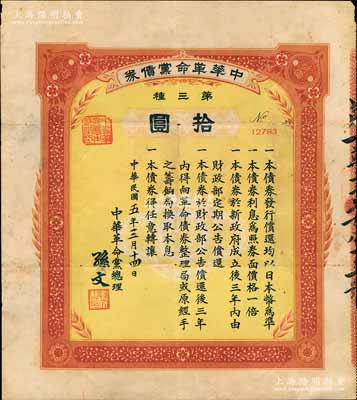 上海陽明拍賣
中華革命黨債券
第三種
No 12783
拾圓
一本債券發行償還均以日本幣為準
一本債券利息為照券面價格一倍
一本債券於新政府成立後三年內由
財政部定期公告償還
一本債券於財政部公告償還後三年
內得向革命債券整理局或原經手
之籌餉局換取本息
一本債券得任意轉讓
中華民國五年三月十四日
中華革命黨總理
孫文